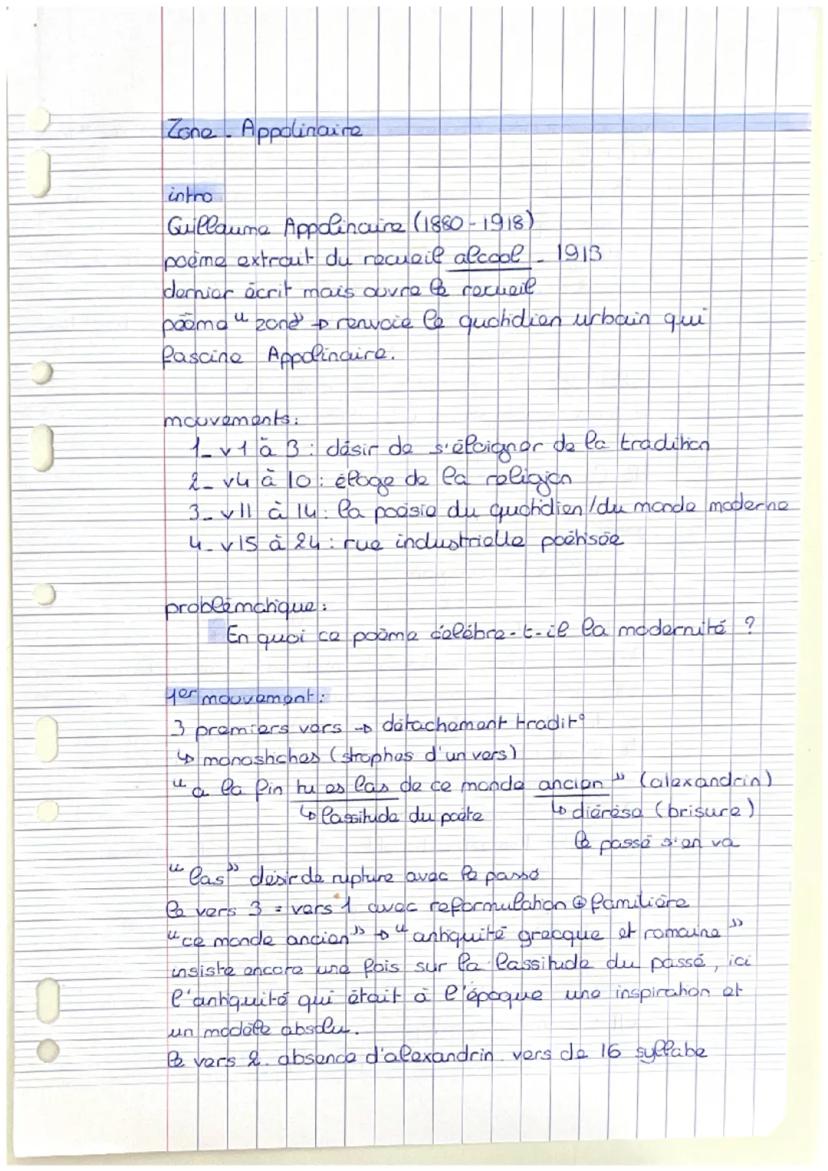 Zone - Appolinaire
intro
Guillaume Appolinaire (1880 - 1918)
poème extrait du recueil alcool - 1913
dernier écrit mais ouvre le recueil
poème "zone" → renvoie le quotidien urbain qui
fascine Appolinaire.
mouvements:
1_ v1 à 3 : désir de s'éloigner de la tradition
2_ v4 à 10 : éloge de la religion
3_ v11 à 14 : la poésie du quotidien / du monde moderne
4_ v15 à 24 : rue industrielle poétisée
problématique :
En quoi ce poème célèbre-t-il la modernité ?
1er mouvement :
3 premiers vers → détachement tradit°
↳ monostiches (strophes d'un vers)
"a la fin tu es las de ce monde ancien" (alexandrin)
↳ lassitude du poète ↳ diérèse (brisure)
le passé s'en va
"las" désir de rupture avec le passé
le vers 3 = vers 1 avec reformulation ⊕ familière
"ce monde ancien" → "antiquité grecque et romaine"
insiste encore une fois sur la lassitude du passé, ici
l'antiquité qui était à l'époque une inspiration et
un modèle absolu.
le vers 2. absence d'alexandrin vers de 16 syllabe